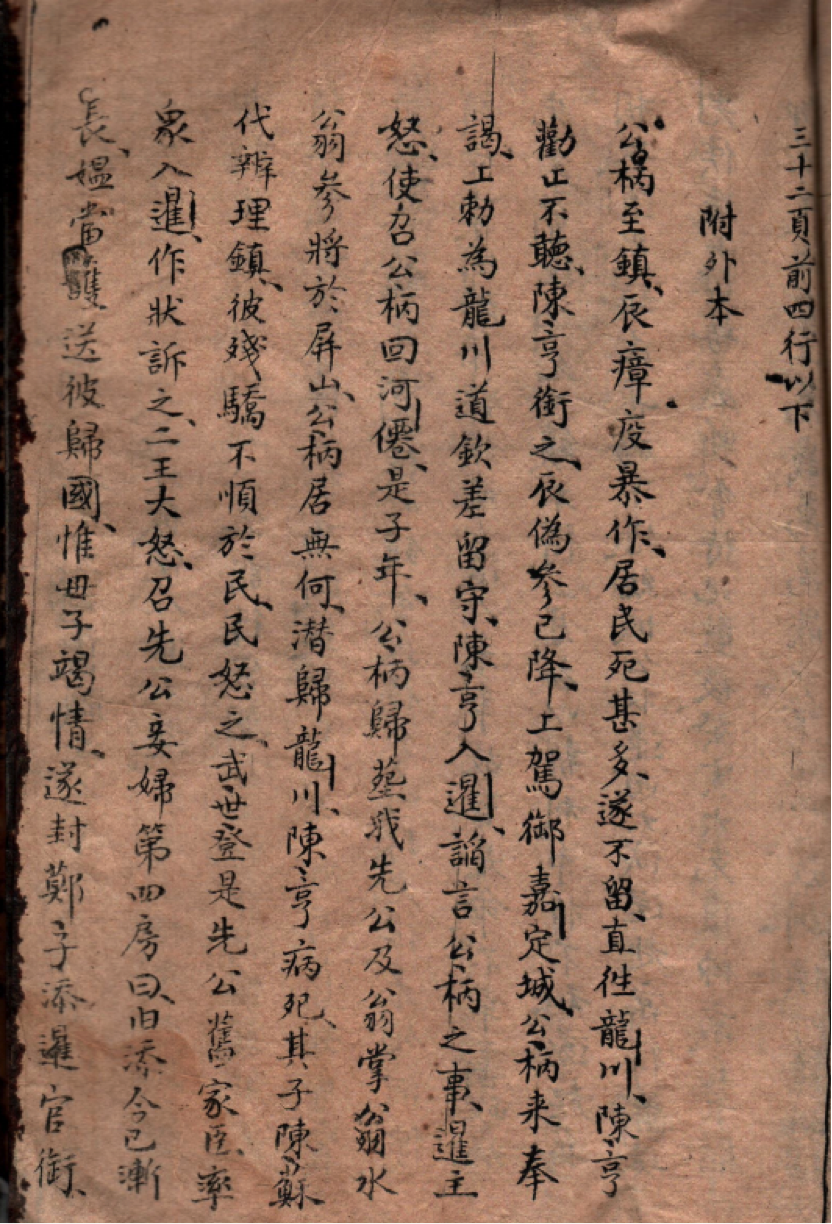 三十二頁前四行以下
附外本
公柄至鎮辰瘴疫暴作居民死甚多遂不留直徃龍川陳亨
勸止不聽陳亨銜之辰偽參已降上駕御嘉定城公柄来奉
謁上勅為龍川道欽差留守陳亨入暹謟言公柄之事暹主
怒使召公柄回河僊是子年公柄歸塟我先公及翁掌翁水
翁參將於屏山公柄居無何潜歸龍川陳亨病死其子陳蘇
代辨理鎮彼殘驕不順於民民怒之武世登是先公舊家臣率
衆入暹作狀訴之二王大怒召先公妾婦第四房曰旧添今已漸
長媪當護送彼歸國惟母子竭情遂封鄭子添暹官銜